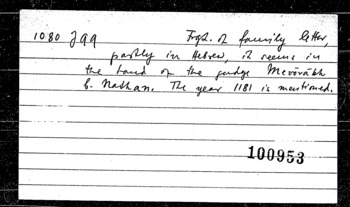 1080 J99 Frgt. of family letter,
partly in Hebrew, it seems in
the hand of the judge Mevōrākh
b. Nathan. The year 1181 is mentioned.
100953